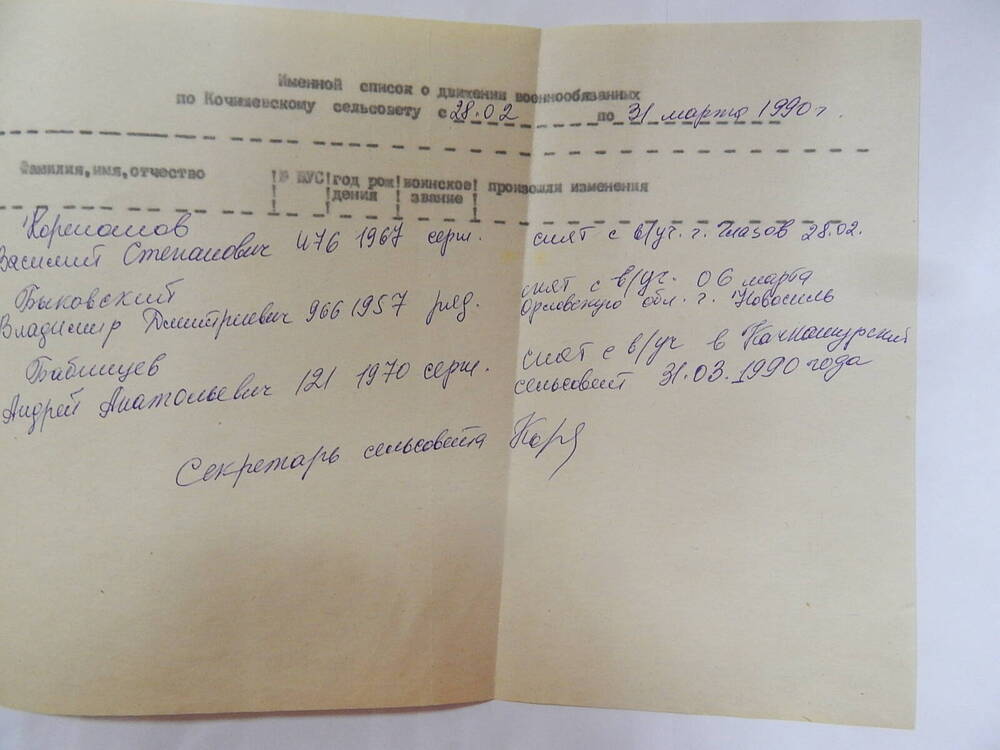 Именной список о движении военнообязанных
по Кочишевскому сельсовету с 28.02 по 31 марта 1990 г.
Фамилия, имя, отчество ! № ВУС ! год рож ! воинское ! произошли изменения
! ! дения ! звание !
Корепанов
Василий Степанович 476 1967 серж. снят с в/уч. г. Глазов 28.02.
Быковский снят с в/уч. 06 марта
Владимир Дмитриевич 966 1957 ряд. Орловскую обл. г. Новосиль
Бабинцев снят с в/уч в Качкашурский
Андрей Анатольевич 121 1970 серж. сельсовет 31.03.1990 года
Секретарь сельсовета